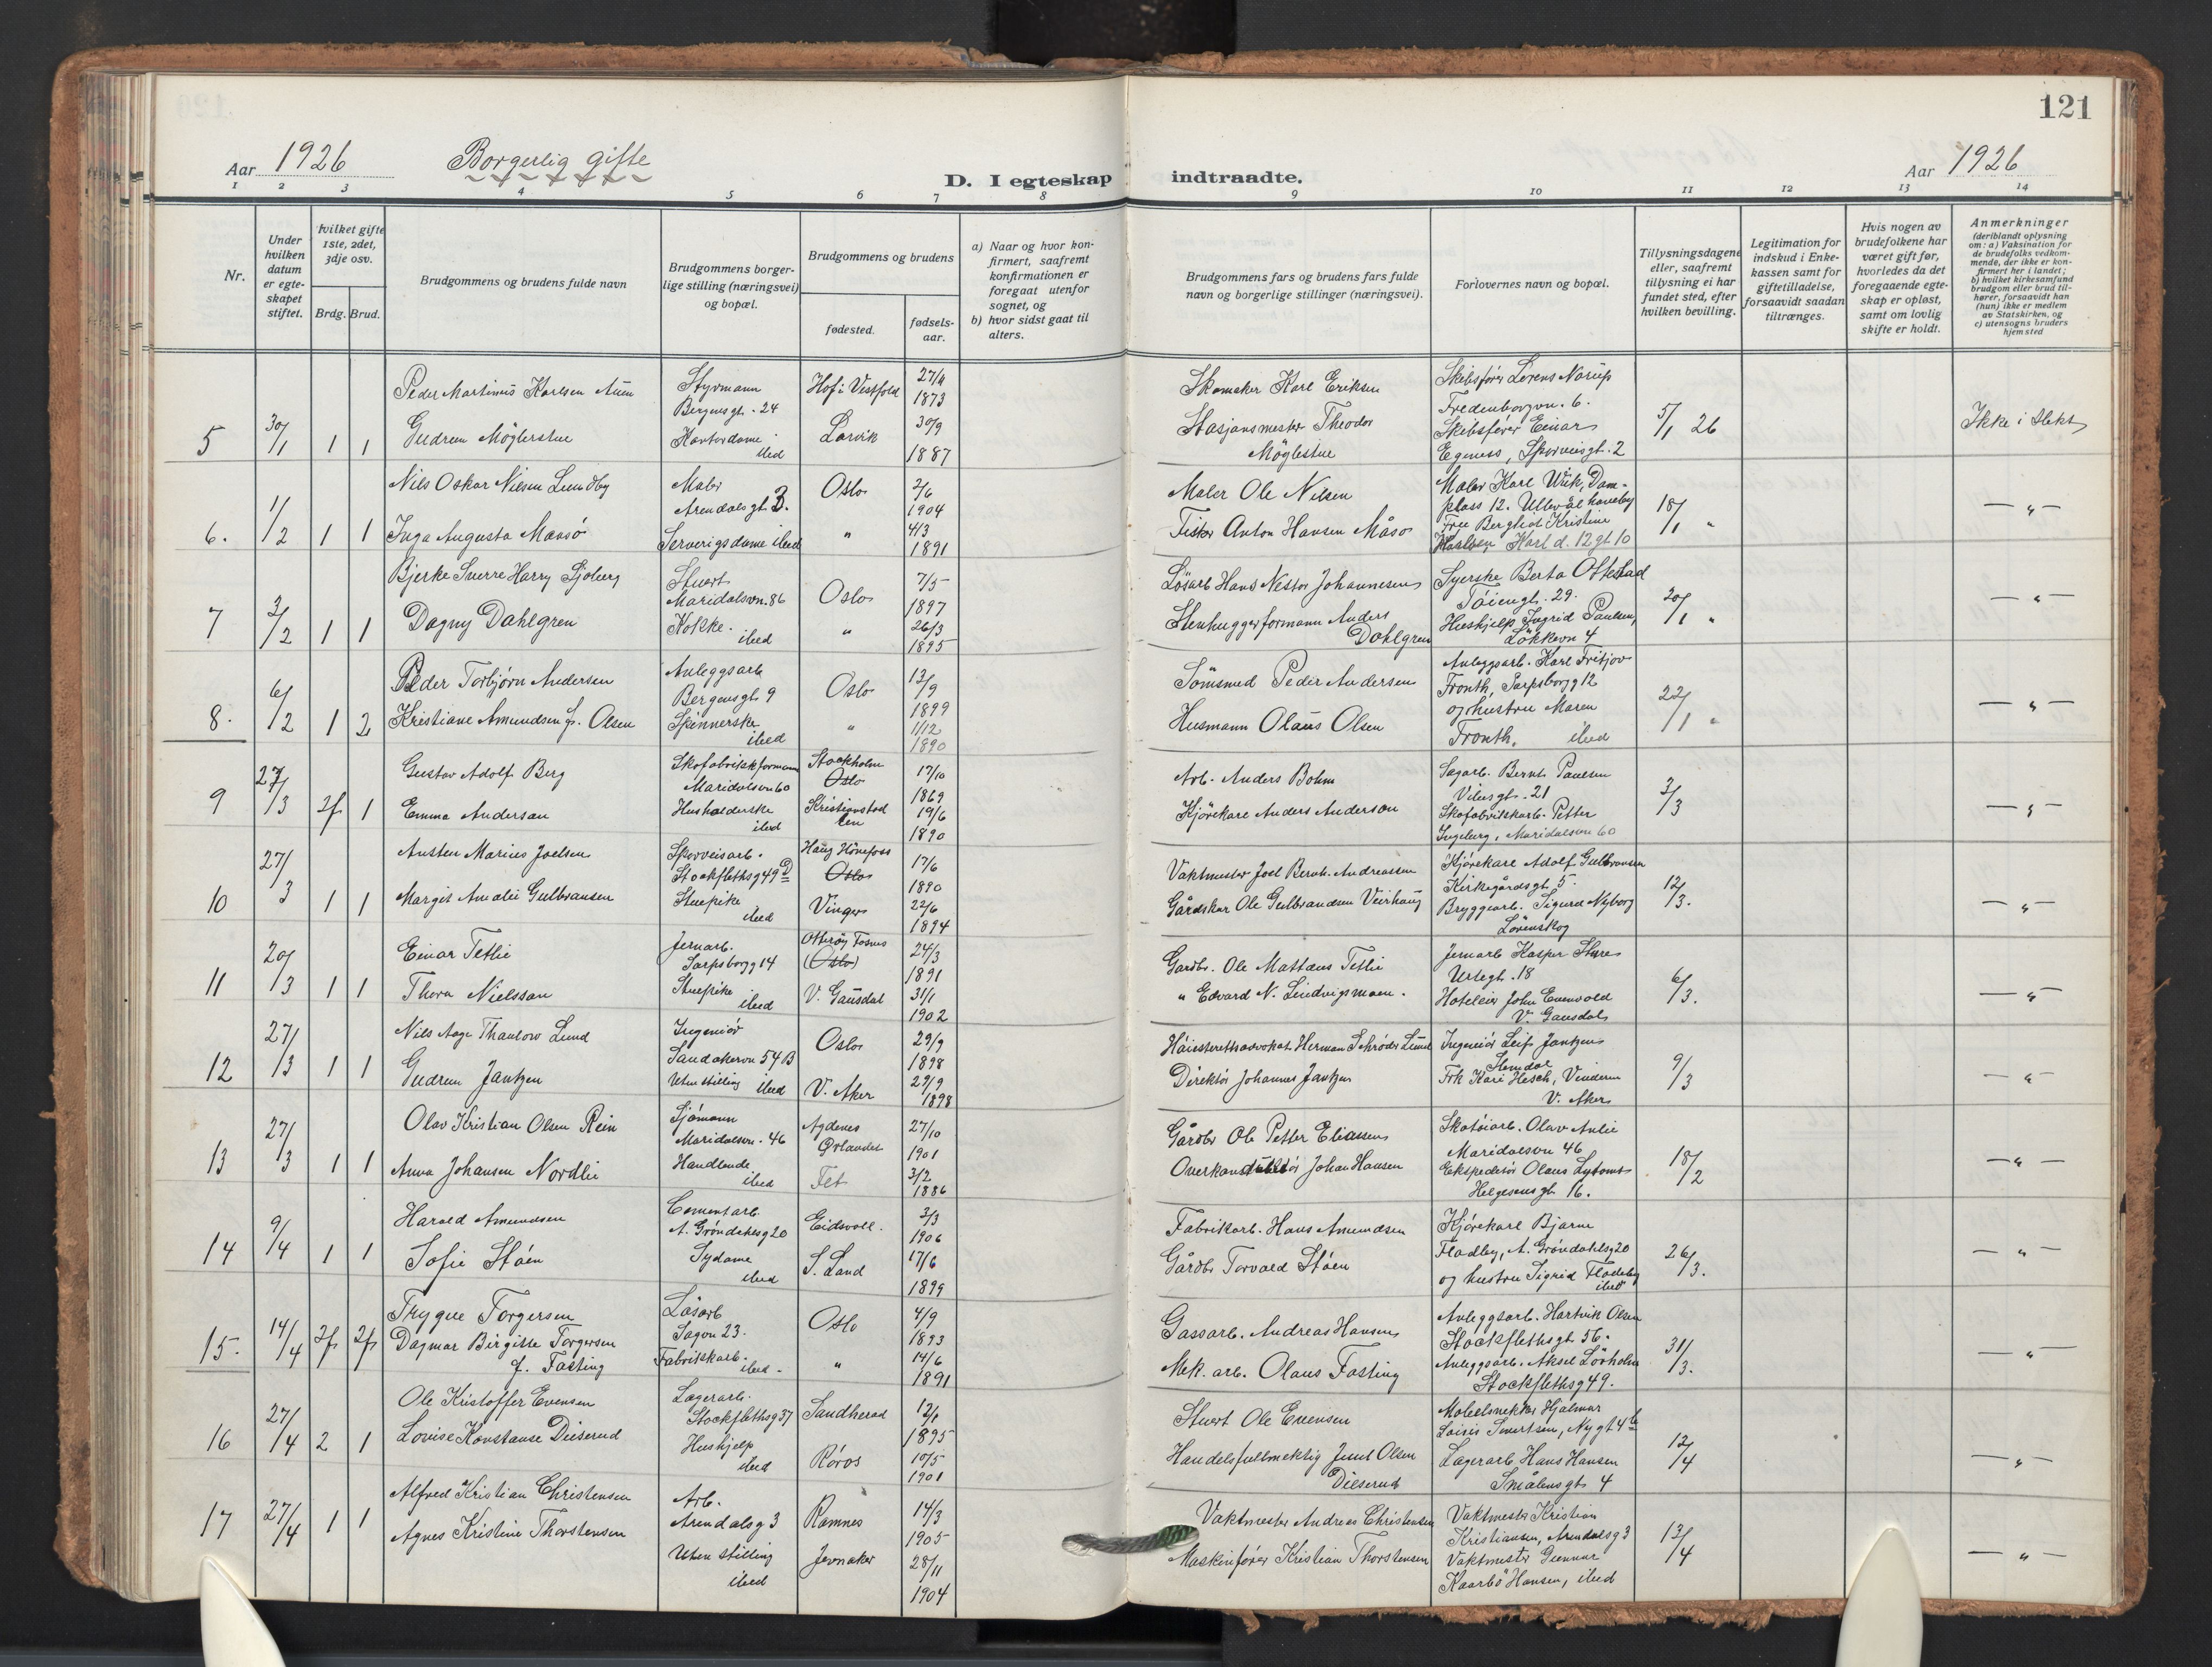 121
Aar 1926
Borgerlig gifte
D. I egteskap indtraadte.
Aar 1926
1 2 3 4 5 6 7 8 9 10 11 12 13 14
Nr.
Under hvilken datum er egteskapet stiftet.
hvilket gifte 1ste, 2det, 3dje osv.
Brdg. Brud.
Brudgommens og brudens fulde navn
Brudgommens borgerlige stilling (næringsvei) og bopæl.
Brudgommens og brudens
fødested.
fødselsaar.
a) Naar og hvor konfirmert, saafremt konfirmationen er foregaat utenfor sognet, og
b) hvor sidst gaat til alters.
Brudgommens fars og brudens fars fulde navn og borgerlige stillinger (næringsvei).
Forlovernes navn og bopæl.
Tillysningsdagene eller, saafremt tillysning ei har fundet sted, efter hvilken bevilling.
Legitimation for indskud i Enkekassen samt for giftetilladelse, forsaavidt saadan tiltrænges.
Hvis nogen av brudefolkene har været gift før, hvorledes da det foregaaende egteskap er opløst, samt om lovlig skifte er holdt.
Anmerkninger
(deriblandt oplysning om: a) Vaksination for de brudefolks vedkommende, der ikke er konfirmert her i landet; b) hvilket kirkesamfund brudgom eller brud tilhører, forsaavidt han (hun) ikke er medlem av Statskirken, og c) utensogns bruders hjemsted
5 30/1 1 1
Peder Martinus Karlsen Auen
Gudrun Møglerstue
Styrmann
Bergensgt. 24
Kontordame
ibed
Hof i Vestfold 27/4 1873
Larvik 30/9 1887
Skomaker Karl Eriksen
Stasjonsmester Theodor
Møglestue
Skibsfører Lorens Narup
Fredenborgvn. 6.
Skibsfører Einar
Egeness, Sporveisgt. 2
5/1 26
Ikke i slekt
6. 1/2 1 1
Nils Oskar Nilsen Lundby
Inga Augusta Maasø
Maler
Arendalsgt 3.
Serverigsdame ibed
Oslo 2/6 1904
" 4/3 1891
Maler Ole Nilsen
Fisker Anton Hansen Måsø
Maler Karl Wiik, Dam-
plass 12. Ullevål haveby
Fru Bergliot Kristine
Karlsen Karl d. 12 gt 10
18/1 "
— " —
7 3/2 1 1
Bjerke Sverre Harry Sjøberg
Dagny Dahlgren
Stuert
Maridalsvn. 86
Kokke.
ibed
Oslo 7/5 1897
" 26/3 1895
Løsarb Hans Nestor Johannesen
Stenhuggerformann Anders
Dahlgren
Syerske Berta Ottestad
Tøiengt. 29.
Huskjelp Ingrid Paulsen,
Løkkevn 4
20/1 "
— " —
8. 6/2 1 2
Peder Torbjørn Andersen
Kristiane Amundsen f. Olsen
Anleggsarb
Bergensgt 9
Spinnerske
ibed
Oslo 13/9 1899
" 1/12 1890
Sømsmed Peder Andersen
Husmann Olaus Olsen
Anleggsarb. Karl Fritjov
Fronth, Sarpsborgg 12
og hustru Maren
Fronth, ibed
22/1 "
— " —
9 27/3 2f 1
Gustav Adolf Berg
Emma Anderson
Skofabrikkformann
Maridalsvn 60
Husholderske
ibed
Stockholm
Oslo 17/10 1869
Kristianstad
len 19/6 1890
Arb. Anders Bohm
Kjørekare Anders Anderson
Sagarb. Bernt Paulsen
Vibesgt. 21
Skofabrikkarb. Petter
Ingeberg, Maridalsvn 60
3/3
— " —
10 27/3 1 1
Austen Marius Joelsen
Margit Amalie Gulbransen
Sporveisarb.
Stockflethsg 49 D
Stuepike
ibed
Haug Hønefoss
Oslo 17/6 1890
Vinger 22/6 1894
Vaktmester Joel Bernh. Andreassen
Gårdskar Ole Gulbrandsen Veirhaug
Kjørekare Adolf Gulbransen
Kirkegårdsgt 5.
Bryggearb. Sigurd Nyborg
Lørenskog
12/3.
— " —
11 20/3 1 1
Einar Tetlie
Thora Nielssen
Jernarb.
Sarpsborgg 14
Stuepike
ibed
Otterøy Fosnes
(Oslo) 24/3 1891
V. Gausdal 31/1 1902
Gardbr. Ole Mattæus Tetlie
" Edvard N. Lindvigsmoen.
Jernarb Kasper Støre
Urtegt. 18
Hoteleier John Evenvold
V. Gausdal
6/3.
— " —
12 27/3 1 1
Nils Aage Thaulow Lund
Gudrun Jantzen
Ingeniør
Sandakervn 54 B
Uten stilling ibed
Oslo 29/9 1898
V. Aker 29/9 1898
Høiesterettsadvokat Herman Schrøder Lund
Direktør Johannes Jantzen
Ingeniør Leif Jantzen
Slemdal
Frk Kari Hesch, Vinderen
V. Aker
9/3
— " —
13 27/3 1 1
Olav Kristian Olsen Rein
Anna Johansen Nordlie
Sjømann
Maridalsvn. 46
Handlende
ibed
Agdenes
Ørlandet 27/10 1901
Fet 3/2 1886
Gårdbr Ole Petter Eliassen
Overkonduktør Johan Hansen
Skotøiarb. Olav Aulie
Maridalsvn 46
Ekspeditør Olaus Lystomt
Helgesensgt 16.
18/2
— " —
14 9/4 1 1
Harald Amundsen
Sofie Støen
Cementarb.
A. Grøndahlsg 20
Sydame
ibed
Eidsvoll. 3/3 1906
S. Land 17/6 1899
Fabrikkarb. Hans Amundsen
Gårdbr Torvald Støen
Kjørekarl Bjarne
Fladby, A. Grøndahlsg 20
og hustru Sigrid Fladeby
ibed
26/3.
— " —
15. 14/4 2f 2f
Trygve Torgersen
Dagmar Birgitte Torgersen
f. Fasting
Løsarb
Sagvn 23.
Fabrikkarb.
ibed.
Oslo 4/9 1893
" 14/6 1891
Gassarb. Andreas Hansen
Mek. arb. Olaus Fasting
Anleggsarb. Hartvik Olsen
Stockflethsgt 56.
Anleggsarb. Aksel Løvholm
Stockflethsg 49.
31/3.
— " —
16 27/4 2 1
Ole Kristoffer Evensen
Lovise Konstanse Diserud
Lagerarb.
Stockflethsg 37
Huskjelp
ibed
Sandherad 12/1 1895
Røros 10/5 1901
Stuert Ole Evensen
Handelsfullmektig Juul Olsen
Diserud
Møbelsnekker Hjalmar
Loisis Sivertsen, Nygt 4 b
Lagerarb Hans Hansen
Smålensgt 4
12/4
— " —
17 27/4 1 1
Alfred Kristian Christensen
Agnes Kristine Thorstensen
Arb.
Arendalsg 3
Uten stilling
ibed
Ramnes 14/3 1905
Jevnaker 28/11 1904
Vaktmester Andreas Christensen
Maskinfører Kristian Thorstensen
Vaktmester Kristian
Kristiansen, Arendalsg 3
Vaktmester Gunnar
Kaarbø Hansen, ibed
13/4
— " —